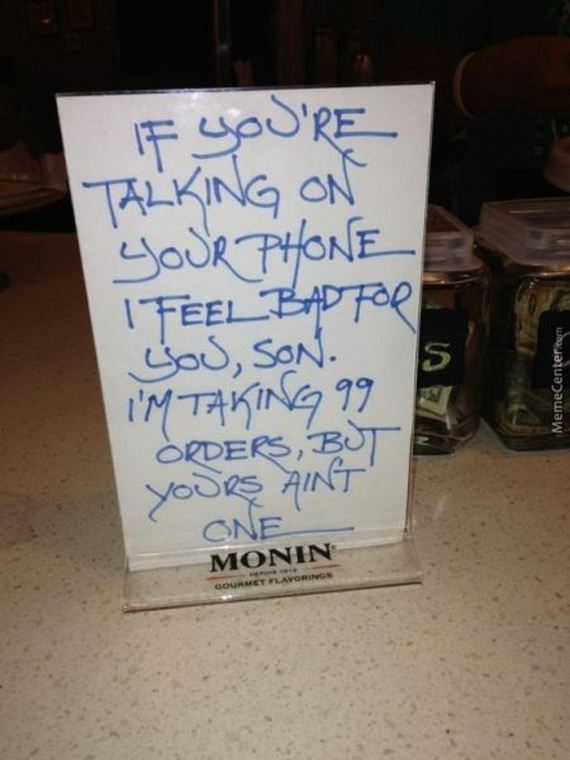 IF YOU'RE
TALKING ON
YOUR PHONE
I FEEL BAD FOR
YOU, SON.
I'M TAKING 99
ORDERS, BUT
YOURS AIN'T
ONE
MONIN
DEPUIS 1912
GOURMET FLAVORINGS
S
MemeCenter.com